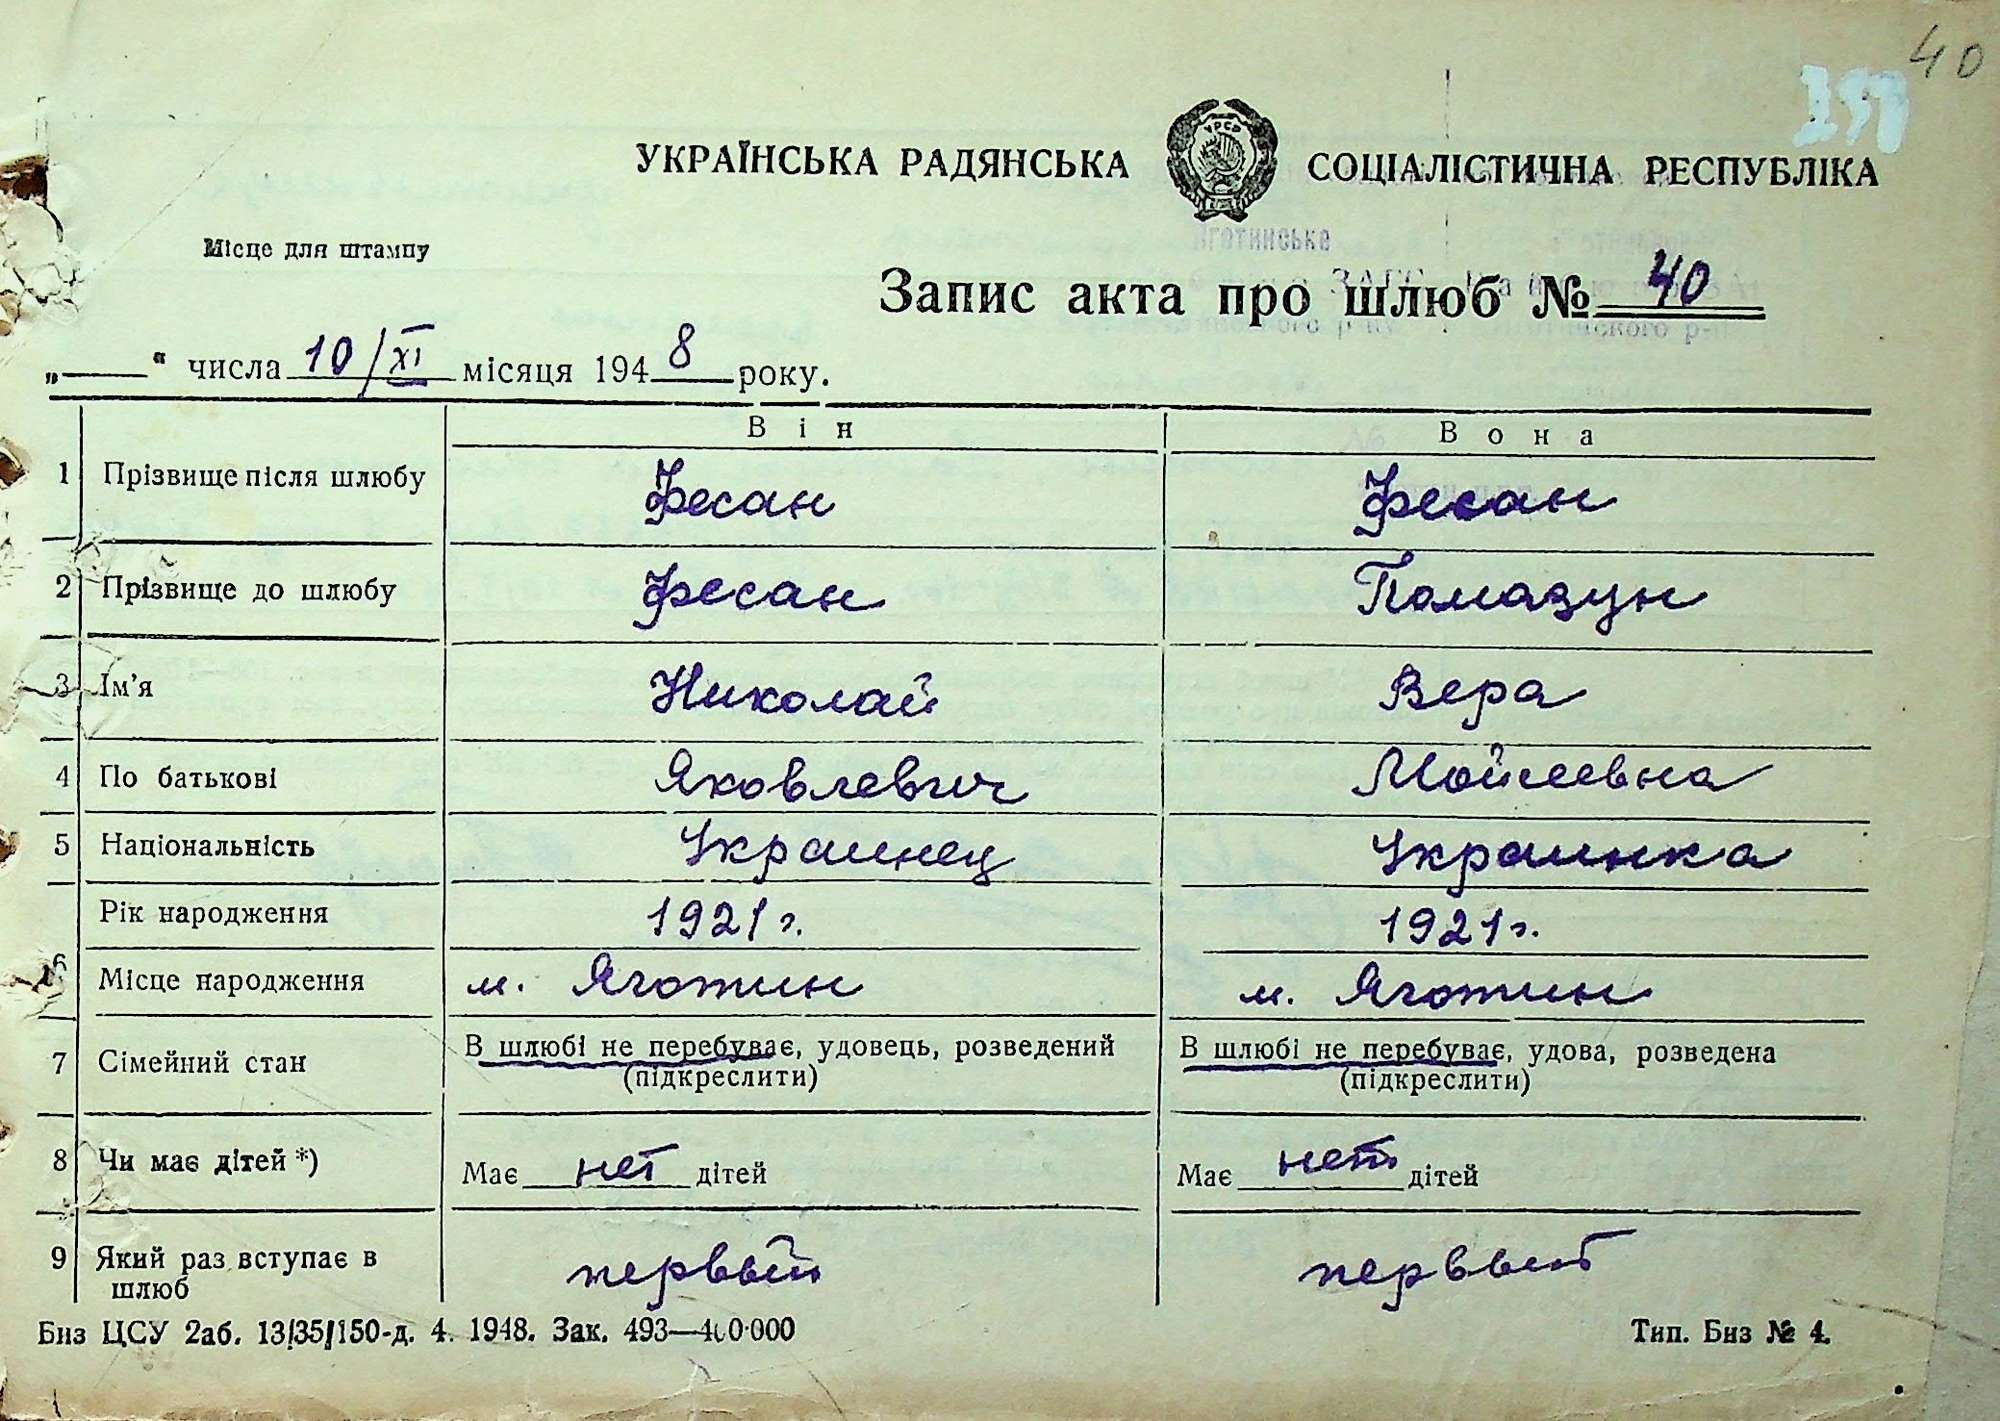 40
УКРАЇНСЬКА РАДЯНСЬКА СОЦІАЛІСТИЧНА РЕСПУБЛІКА
УРСР
Місце для штампу
Яготинське
Запис акта про шлюб № 40
„ “ числа 10/XI місяця 1948 року.
Він Вона
1 Прізвище після шлюбу Фесан Фесан
2 Прізвище до шлюбу Фесан Помазун
3 Ім'я Николай Вера
4 По батькові Яковлевич Мойсеевна
5 Національність Украинец Украинка
Рік народження 1921 г. 1921 г.
6 Місце народження м. Яготин м. Яготин
7 Сімейний стан В шлюбі не перебуває, удовець, розведений В шлюбі не перебуває, удова, розведена
(підкреслити) (підкреслити)
8 Чи має дітей *) Має нет дітей Має нет дітей
9 Який раз вступає в шлюб первый первый
Биз ЦСУ 2аб. 13/35/150-д. 4. 1948. Зак. 493—400·000 Тип. Биз № 4.